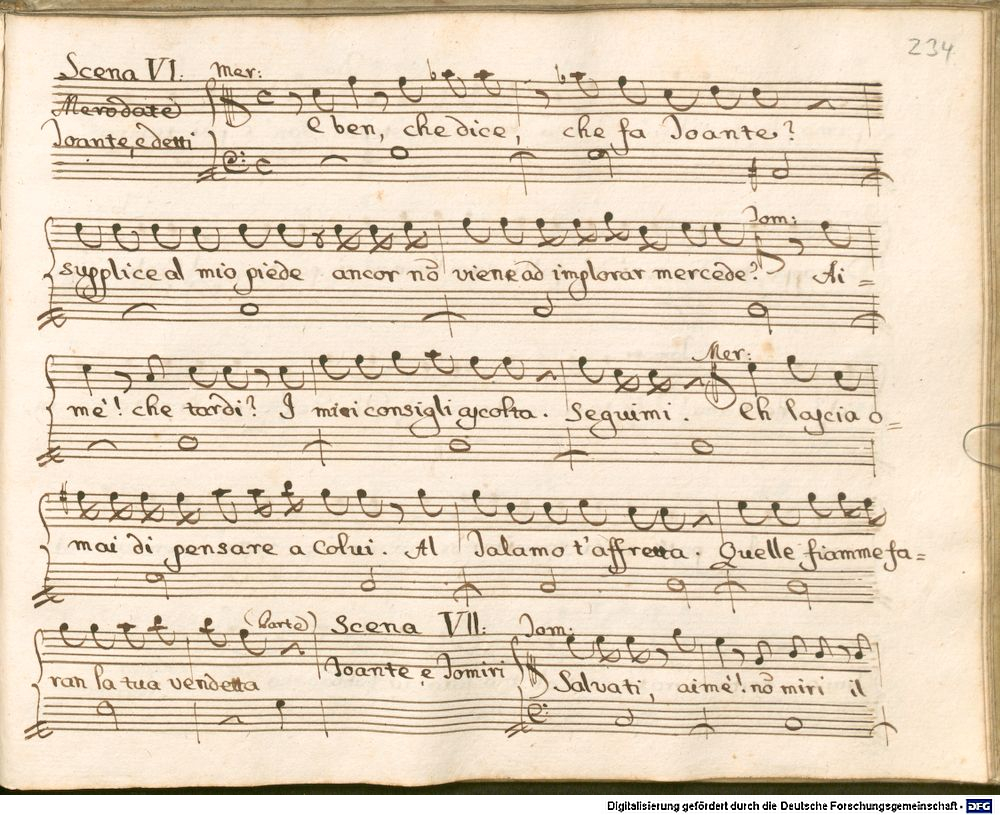 234
Scena VI: Mer:
Merodate
Joante, e detti
e ben, che dice, che fa Joante?
Jom:
supplice al mio piede ancor nō viene ad implorar mercede? Ai=
Mer:
mè! che tardi? I miei consigli ascolta. Seguimi. Eh lascia o=
mai di pensare a colui. Al Talamo t'affretta. Quelle fiamme fa=
(parte) Scena VII: Jom:
ran la tua vendetta Joante, e Jomiri Salvati, aimè! nō miri il
Digitalisierung gefördert durch die Deutsche Forschungsgemeinschaft - DFG